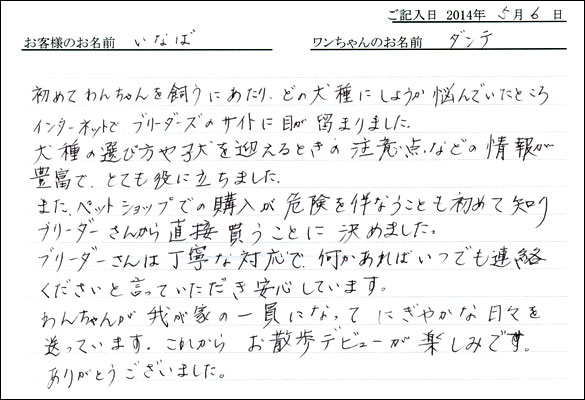 ご記入日 2014年 5月 6日
お客様のお名前 いなば ワンちゃんのお名前 ダンテ
初めてわんちゃんを飼うにあたり、どの犬種にしようか悩んでいたところ
インターネットで ブリーダーズのサイトに目が留まりました。
犬種の選び方や子犬を迎えるときの注意点などの情報が
豊富で、とても役に立ちました。
また、ペットショップでの購入が危険を伴なうことも初めて知り
ブリーダーさんから直接買うことに決めました。
ブリーダーさんは丁寧な対応で、何かあればいつでも連絡
くださいと言っていただき安心しています。
わんちゃんが我が家の一員になってにぎやかな日々を
送っています。これからお散歩デビューが楽しみです。
ありがとうございました。